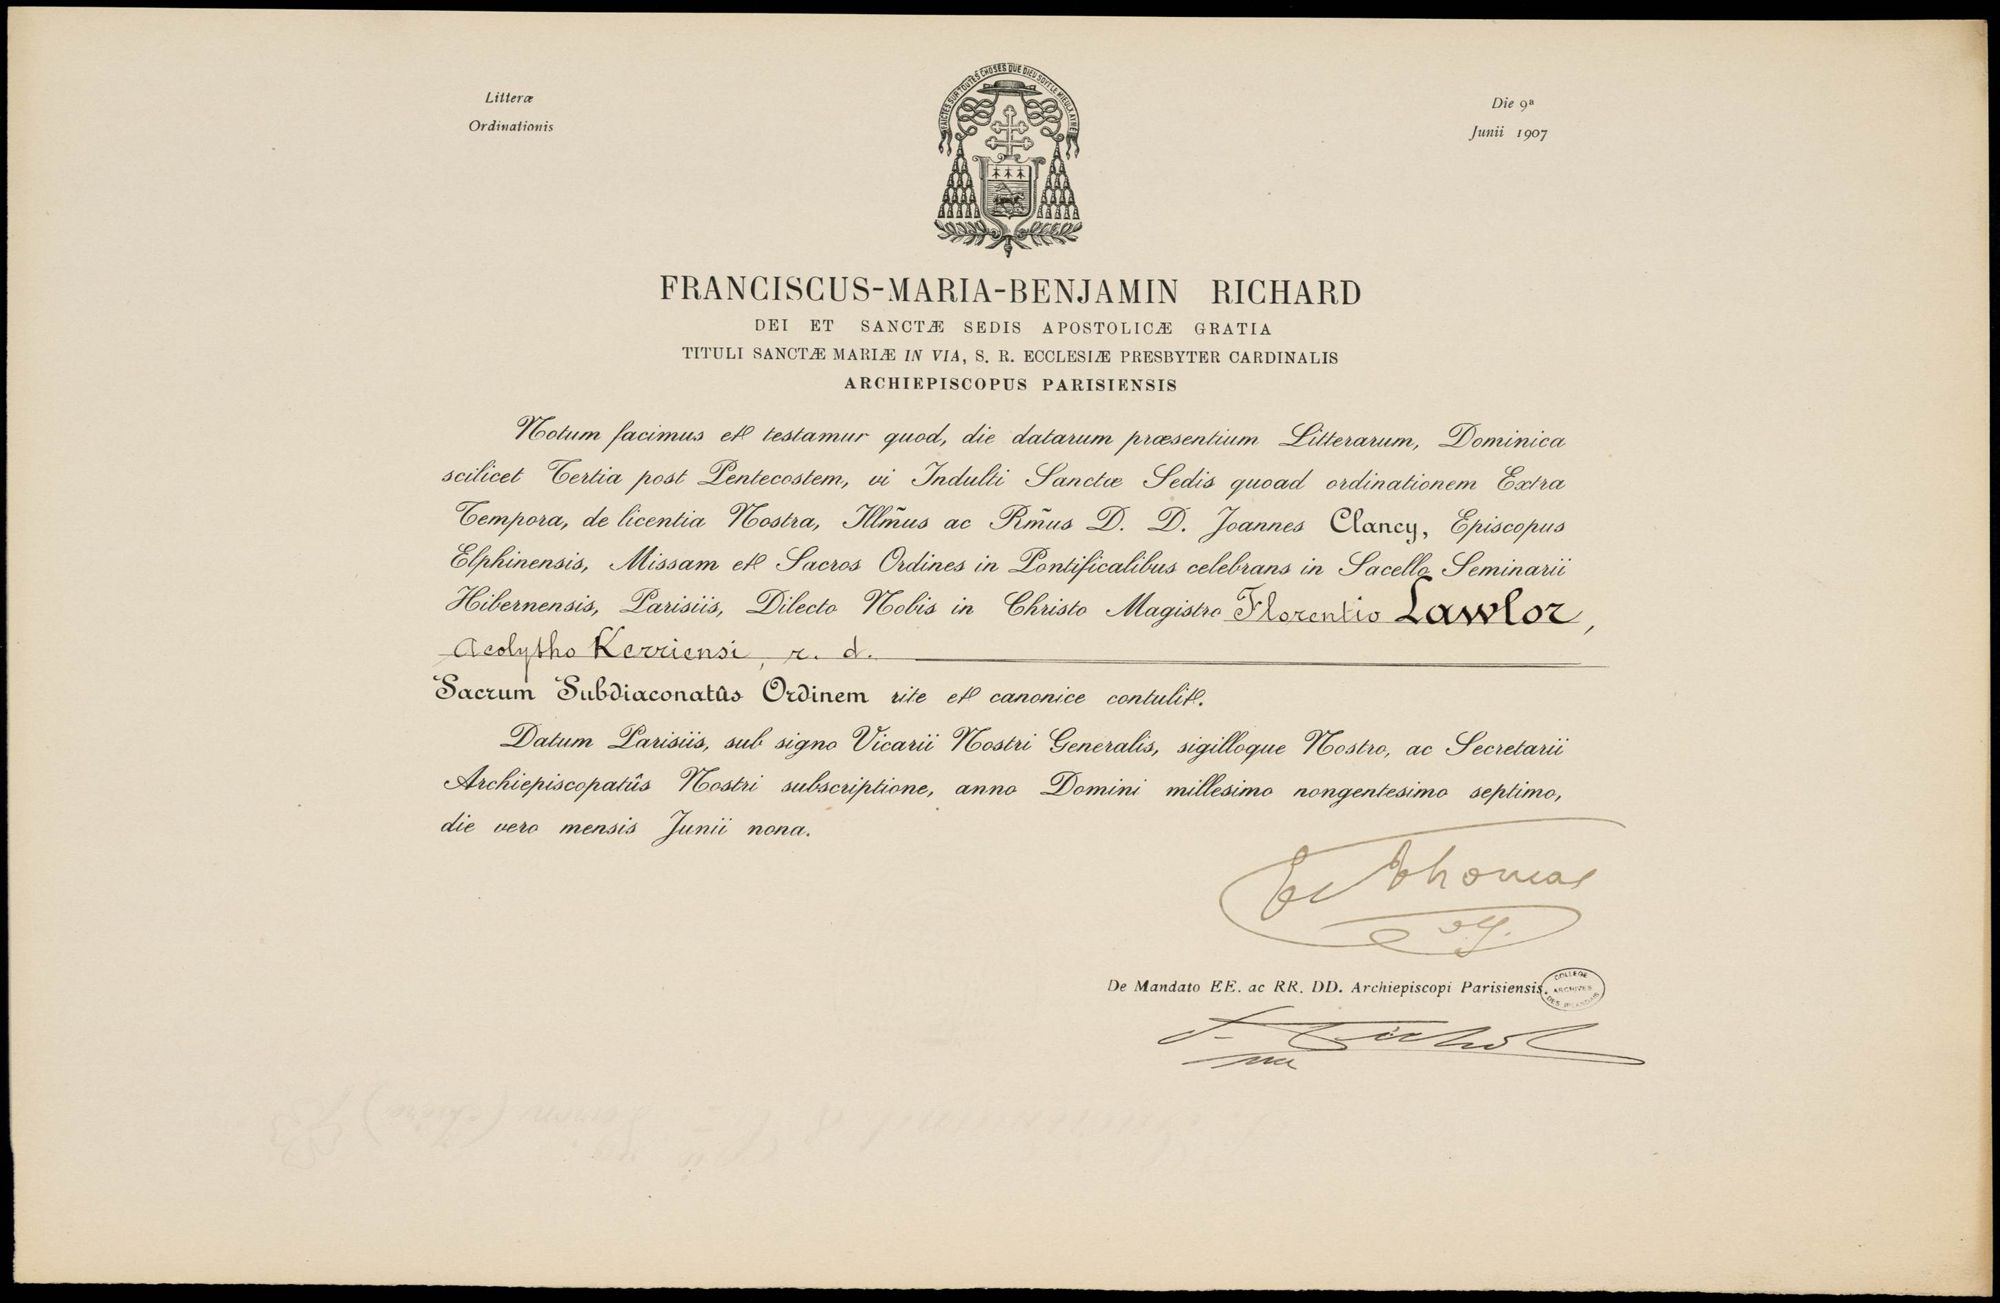 Litteræ
Ordinationis
Die 9ª
Junii 1907
FAICTES SUR TOUTES CHOSES QUE DIEU SOYT LE MIEULX AYMÉ
FRANCISCUS-MARIA-BENJAMIN RICHARD
DEI ET SANCTÆ SEDIS APOSTOLICÆ GRATIA
TITULI SANCTÆ MARIÆ IN VIA, S. R. ECCLESIÆ PRESBYTER CARDINALIS
ARCHIEPISCOPUS PARISIENSIS
Notum facimus et testamur quod, die datarum præsentium Litterarum, Dominica
scilicet Tertia post Pentecostem, vi Indulti Sanctæ Sedis quoad ordinationem Extra
Tempora, de licentia Nostra, Illm̃us ac Rm̃us D. D. Joannes Clancy, Episcopus
Elphinensis, Missam et Sacros Ordines in Pontificalibus celebrans in Sacello Seminarii
Hibernensis, Parisiis, Dilecto Nobis in Christo Magistro Florentio Lawlor,
Acolytho Kerriensi, r. d.
Sacrum Subdiaconatûs Ordinem rite et canonice contulit.
Datum Parisiis, sub signo Vicarii Nostri Generalis, sigilloque Nostro, ac Secretarii
Archiepiscopatûs Nostri subscriptione, anno Domini millesimo nongentesimo septimo,
die vero mensis Junii nona.
Thomas
v.g.
De Mandato EE. ac RR. DD. Archiepiscopi Parisiensis.
COLLEGE
ARCHIVES
DES IRLANDAIS